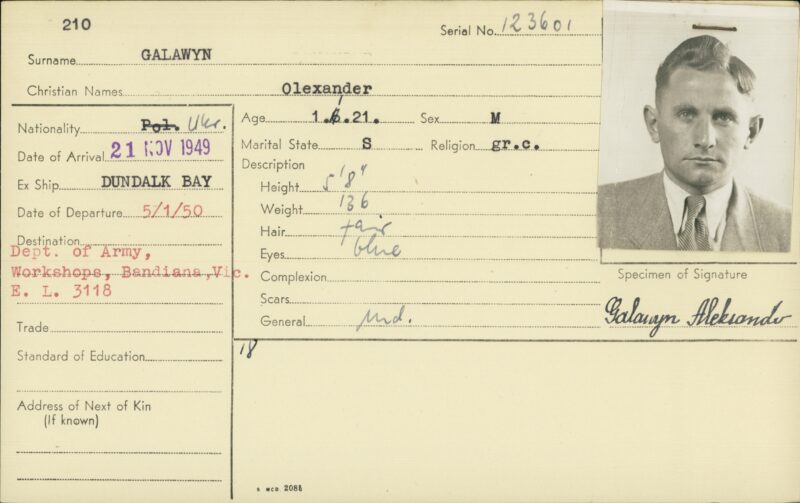 210
Serial No. 123601
Surname GALAWYN
Christian Names Olexander
Nationality Pol. Ukr.
Date of Arrival 21 NOV 1949
Ex Ship DUNDALK BAY
Date of Departure 5/1/50
Destination
Dept. of Army,
Workshops, Bandiana, Vic.
E. L. 3118
Trade
Standard of Education
Address of Next of Kin
(If known)
Age 1.1.21. Sex M
Marital State S Religion gr.c.
Description
Height 5'8"
Weight 136
Hair fair
Eyes blue
Complexion
Scars
General
18
Specimen of Signature
Galawyn Aleksander
S MCD 2086